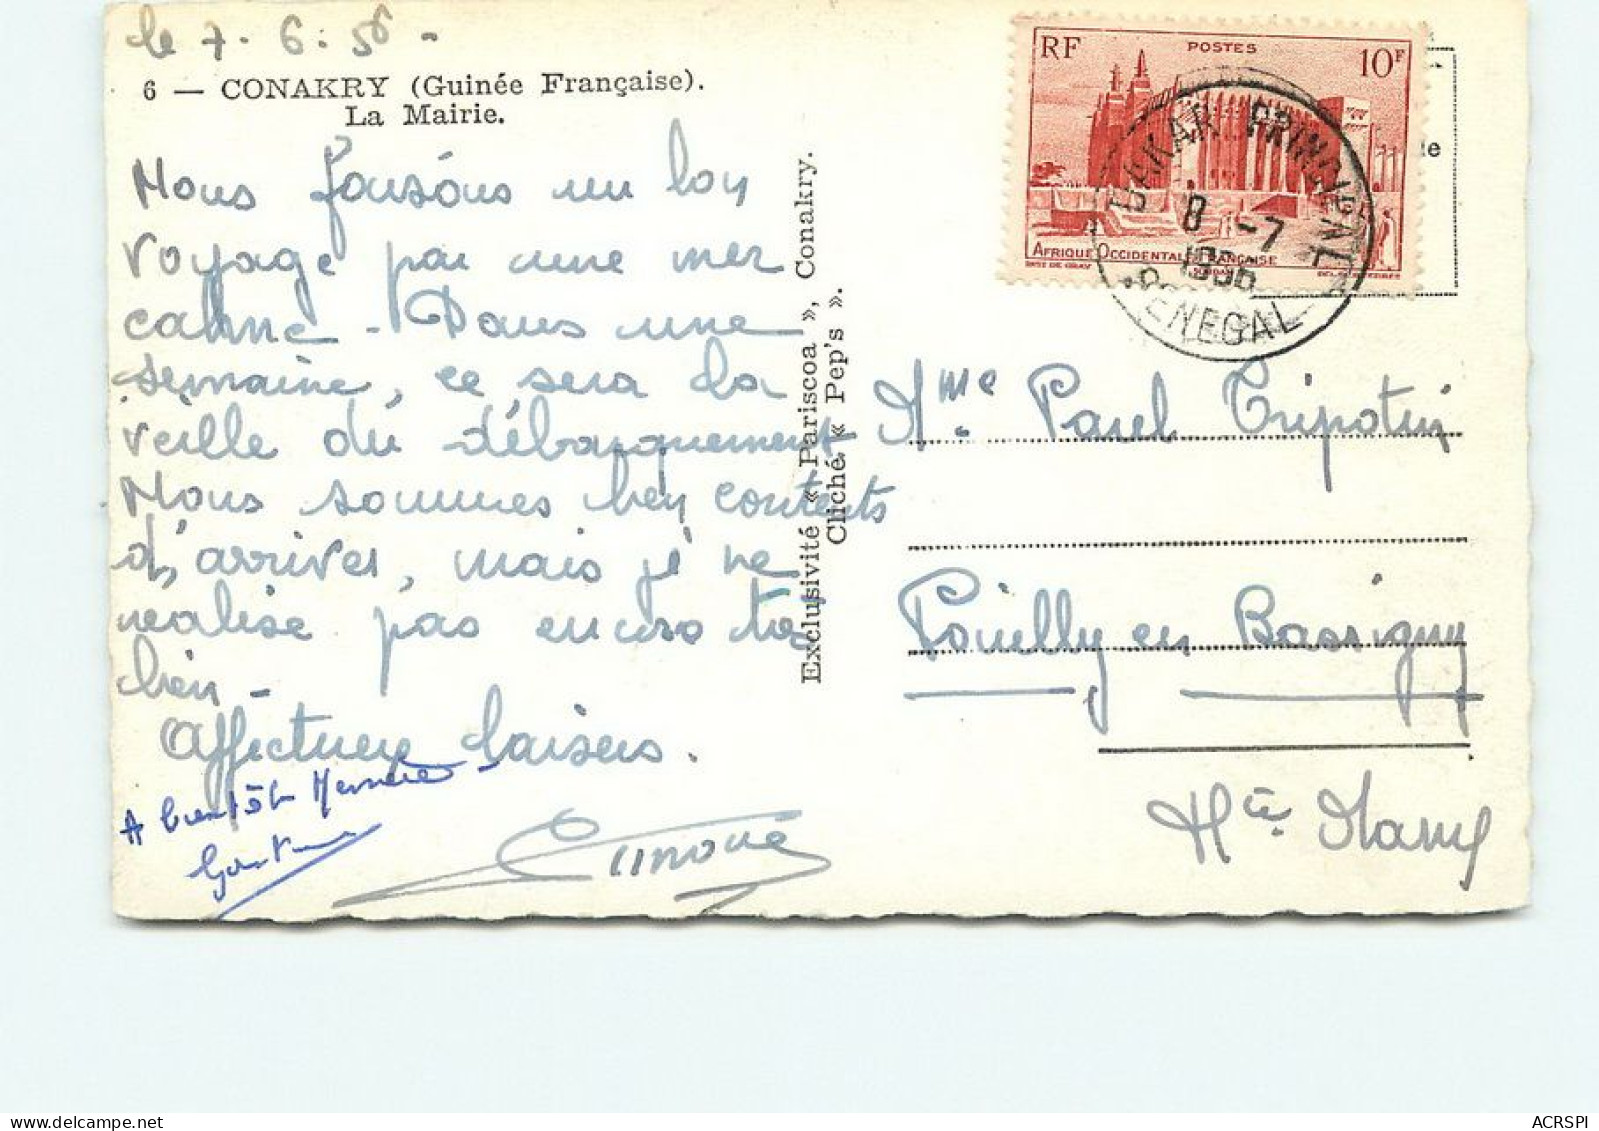 le 7. 6. 56 -
6 — CONAKRY (Guinée Française).
La Mairie.
Nous faisons un bon
voyage par une mer
calme. Dans une
semaine, ce sera la
veille du débarquement
Nous sommes bien contents
d'arriver, mais je ne
réalise pas encore très
bien -
Affectueux baisers.
A bientôt
Exclusivité « Pariscoa », Conakry.
Cliché « Pep's ».
RF POSTES 10F
AFRIQUE OCCIDENTALE FRANÇAISE
DAKAR PRINCIPAL
8 -7
1956
SENEGAL
le
Mme Paul Tripotin
Pouilly en Bassigny
Hte Marne
ACRSPI